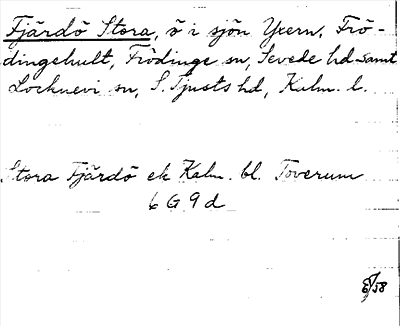 Fjärdö Stora, ö i sjön Yxern, Frö-
dingehult, Frödinge sn, Sevede hd samt
Locknevi sn, S. Tjusts hd, Kalm. l.
Stora Fjärdö ek Kalm. bl. Toverum
6 G 9 d
/58